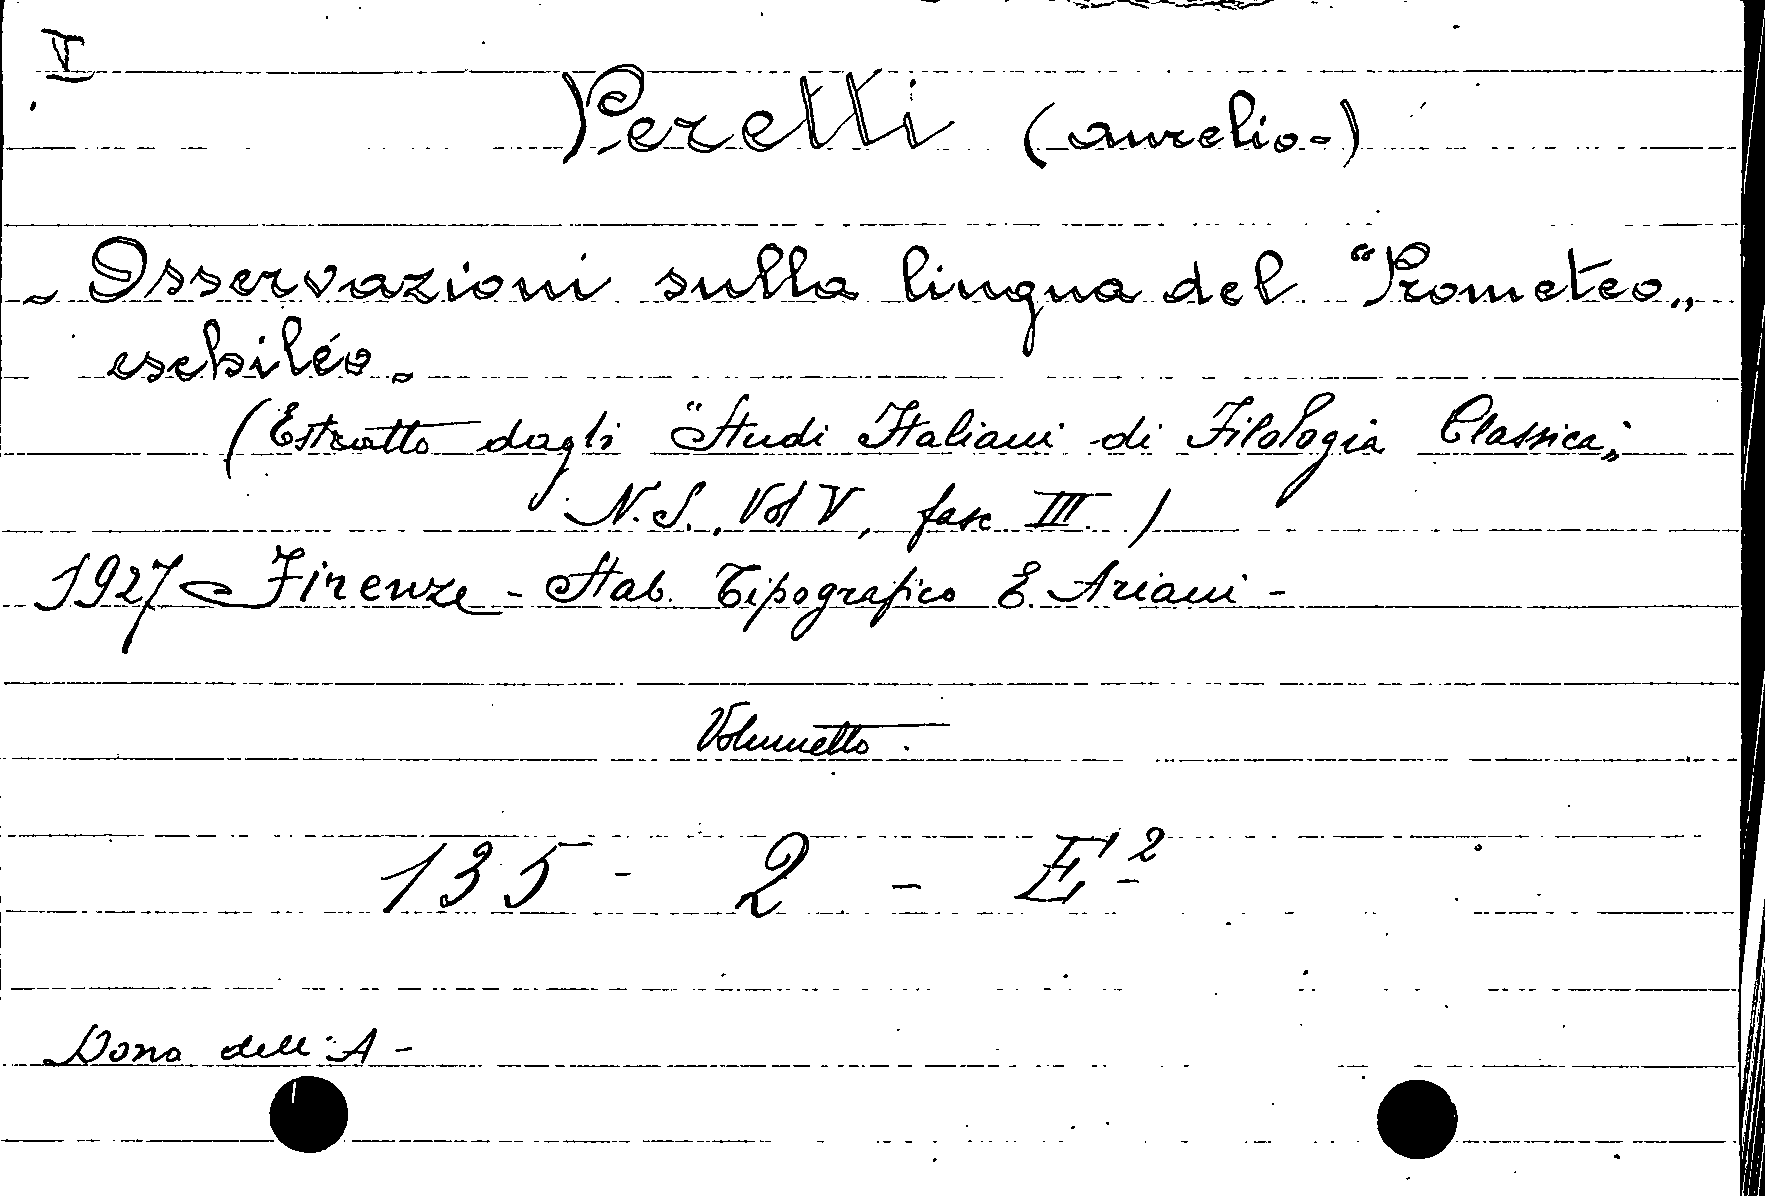 V
Peretti (Aurelio-)
- Osservazioni sulla lingua del "Prometeo„
eschiléo.
(Estratto dagli "Studi Italiani di Filologia Classica„
N.S., Vol V, fasc III.)
1927 - Firenze - Stab. Tipografico E. Ariani -
Volumetto.
135 - 2 - E²
Dono dell'A -